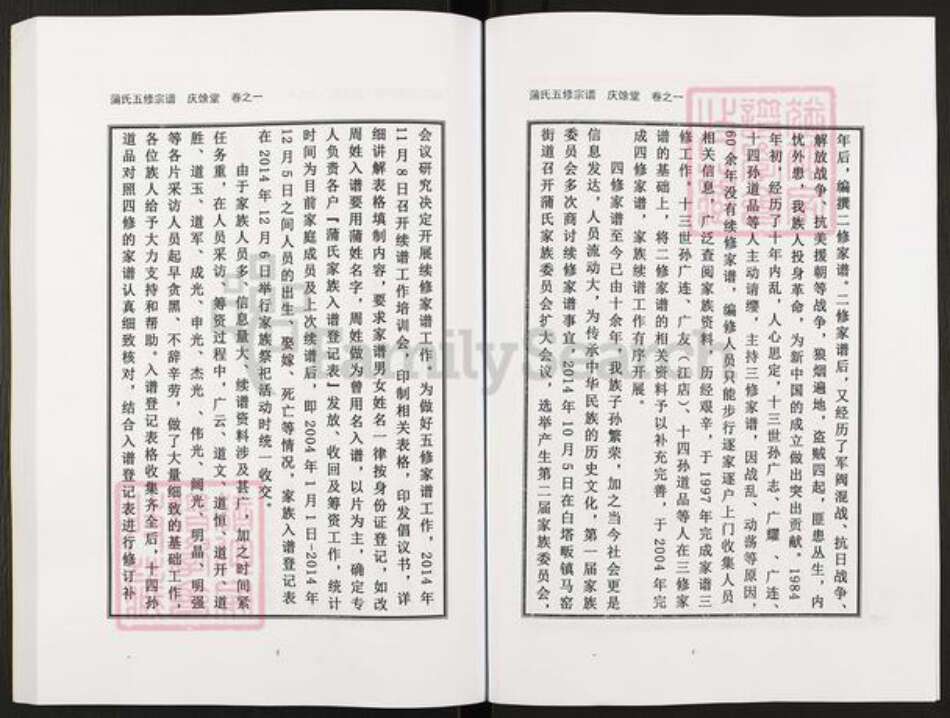 蒲氏五修宗谱　庆馀堂　卷之一
年后，编撰二修家谱。二修家谱后，又经历了军阀混战、抗日战争、
解放战争、抗美援朝等战争，狼烟遍地，盗贼四起，匪患丛生，内
忧外患，我族人投身革命，为新中国的成立做出突出贡献。1984
年初，经历了十年内乱，人心思定，十三世孙广志、广耀、广连、
十四孙道品等人主动请缨，主持三修家谱，因战乱、动荡等原因，
60余年没有续修家谱，编修人员只能步行逐家逐户上门收集人员
相关信息，广泛查阅家族资料，历经艰辛，于1997年完成家谱三
修工作，十三世孙广连、广友（江店）、十四孙道品等人在三修家
谱的基础上，将二修家谱的相关资料予以补充完善，于2004年完
成四修家谱，家族续谱工作有序开展。
四修家谱至今己由十余年，我族子孙繁荣，加之当今社会更是
信息发达，人员流动大，为传承中华民族的历史文化，第一届家族
委员会多次商讨续修家谱事宜，2014年10月5日在白塔畈镇马窑
街道召开蒲氏家族委员会扩大会议，选举产生第二届家族委员会，
蒲氏五修宗谱　庆馀堂　卷之一
会议研究决定开展续修家谱工作，为做好五修家谱工作，2014年
11月8日召开续谱工作培训会，印制相关表格，印发倡议书，详
细讲解表格填制内容，要求家谱男女姓名一律按身份证登记，如改
周姓入谱要用蒲姓名字，周姓做为曾用名入谱，以片为主，确定专
人负责各户『蒲氏家族入谱登记表』发放、收回及筹资工作，统计
时间为目前家庭成员及上次续谱后，即2004年1月1日-2014年
12月5日之间人员的出生、娶嫁、死亡等情况，家族入谱登记表
在2014年12月6日举行家族祭祀活动时统一收交。
由于家族人员多、信息量大、续谱资料涉及甚广，加之时间紧
任务重，在人员采访、筹资过程中，广云、道文、道恒、道开、道
胜、道玉、道军、成光、申光、杰光、、伟光、阔光、明晶、明强
等各片采访人员起早贪黑、不辞辛劳，做了大量细致的基础工作，
各位族人给予大力支持和帮助。入谱登记表格收集齐全后，十四孙
道品对照四修的家谱认真细致核对，结合入谱登记表进行修订补
FamilySearch